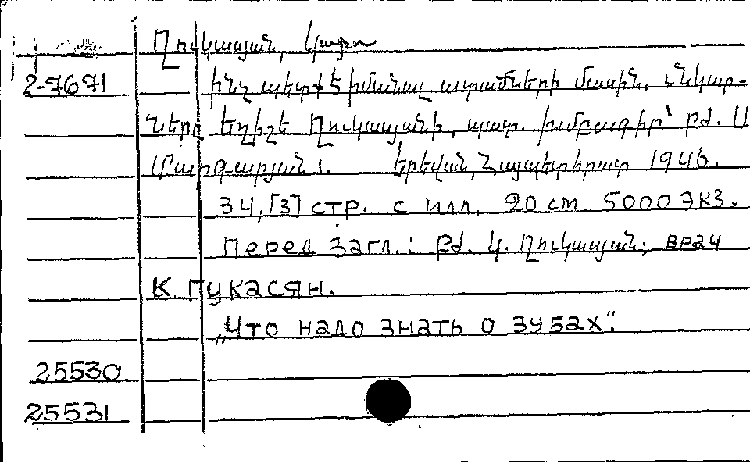 Ղուկասյան, Կարո
2-7671 Ինչ պետք է իմանալ ատամների մասին. Նկար-
ները Եղիշե Ղուկասյանի, պատ. խմբագիր՝ բժ. Ս
Մարգարյան. Երևան, Հայպետհրատ 1946.
34, [3] стр. с илл. 20 см 5000 экз.
Перед загл.: բժ. Կ. Ղուկասյան; врач
К. Гукасян.
„Что надо знать о зубах“.
25530
25531